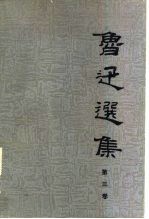 魯迅選集
第三卷